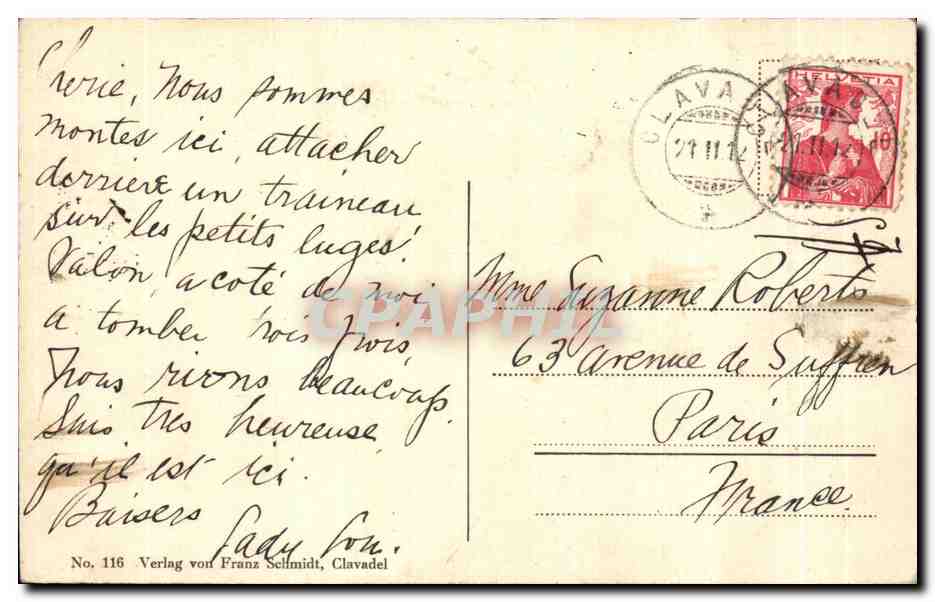 Cherie, Nous sommes
montes ici, attacher
derriere un traineau
sur les petits luges!
Valon, a coté de moi
a tomber trois fois,
Nous rions beaucoup.
Suis tres heureuse
qu'il est ici.
Baisers
Lady Lou.
No. 116 Verlag von Franz Schmidt, Clavadel
CLAVADEL
21.II.12
HELVETIA
10
Mme Suzanne Roberts
63 avenue de Suffren
Paris
France.
CPAPHIL